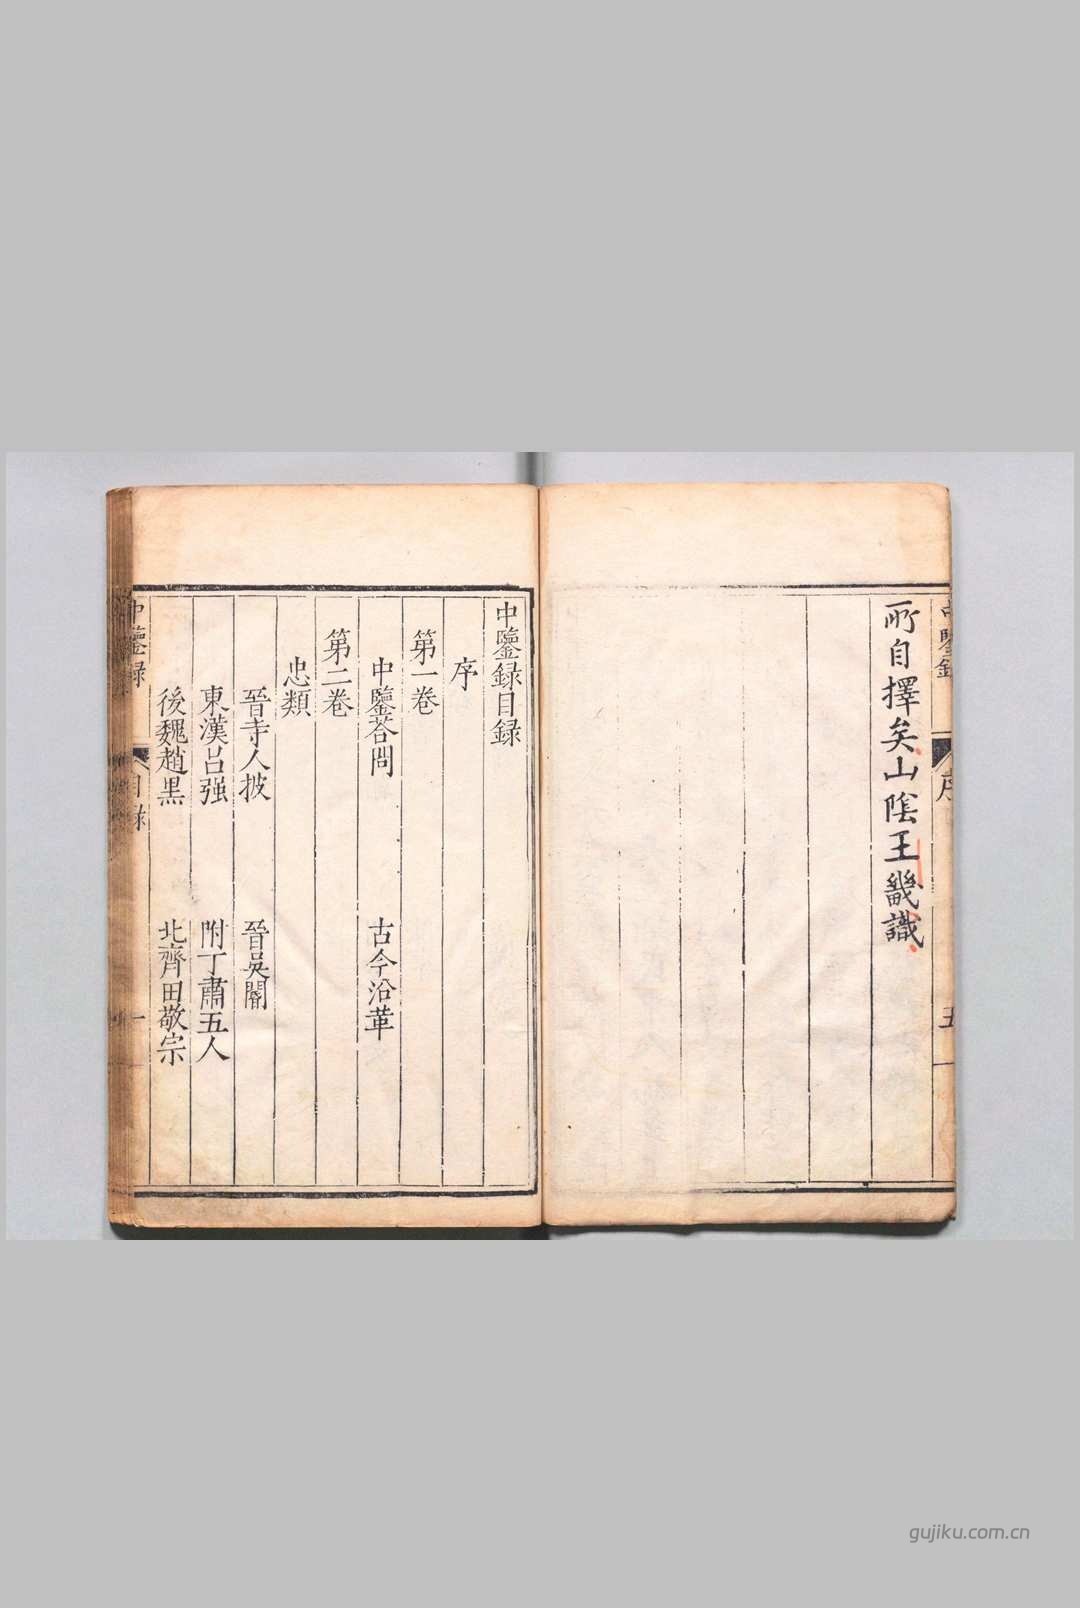 中鑒錄
序
五
所自擇矣山陰王畿識
中鑒録目録
序
第一卷
中鑒荅問 古今沿革
第二卷
忠類
晉寺人披 晉吳閽
東漢吕强 附丁肅五人
後魏趙黑 北齊田敬宗
中鑒録
目録
一
gujiku.com.cn